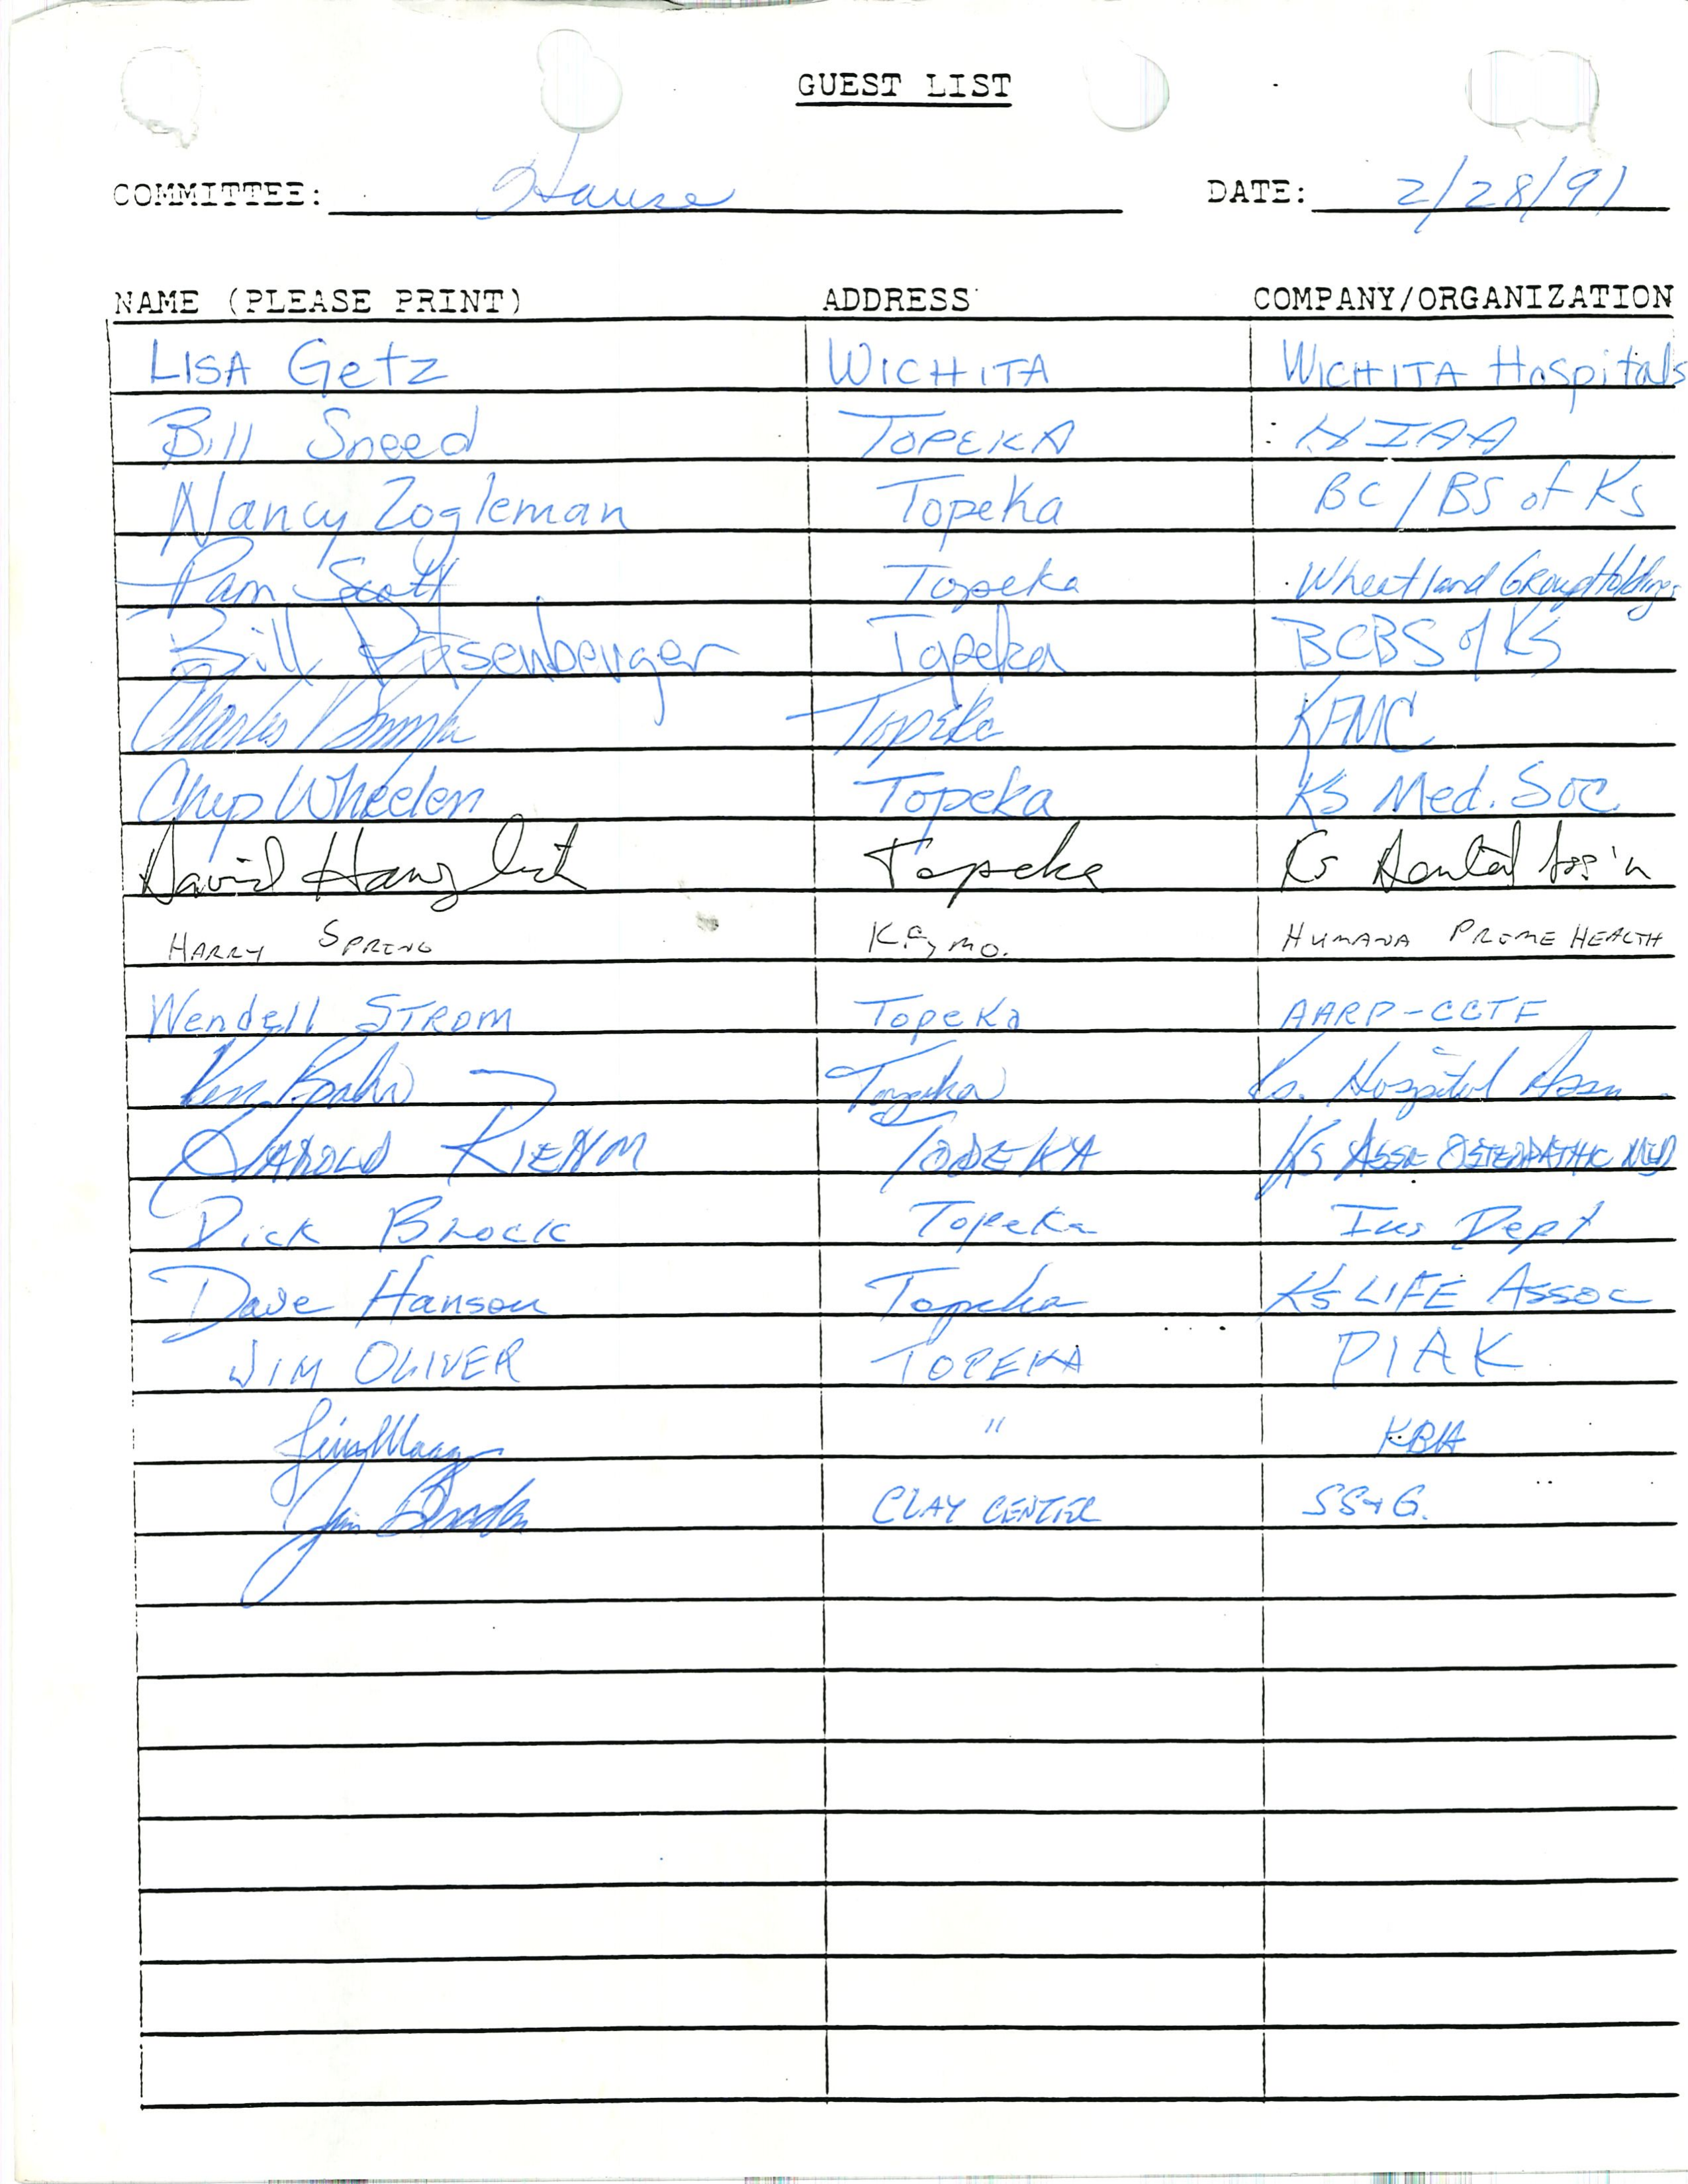 GUEST LIST
COMMITTEE: House DATE: 2/28/91
NAME (PLEASE PRINT) ADDRESS COMPANY/ORGANIZATION
LISA Getz WICHITA WICHITA Hospitals
Bill Sneed TOPEKA HIAA
Nancy Zogleman Topeka BC/BS of KS
Pam Scott Topeka Wheatland Group Holdings
Bill Pitsenberger Topeka BCBS of KS
Charles Topeka KFMC
Chip Wheelen Topeka KS Med. Soc
David Hanzlick Topeka Ks Dental Ass'n
HARRY SPRING K.C, MO. HUMANA PRIME HEALTH
Wendell STROM TOPEKA AARP-CCTF
Topeka Ks. Hospital Assn
HAROLD RIEHM TOPEKA KS ASSN OSTEOPATHIC MED
Dick Brock Topeka Ins Dept
Dave Hanson Topeka KS LIFE ASSOC
JIM OLIVER TOPEKA PIAK
Jim Maag " KBA
Jim Braden CLAY CENTER SS&G.